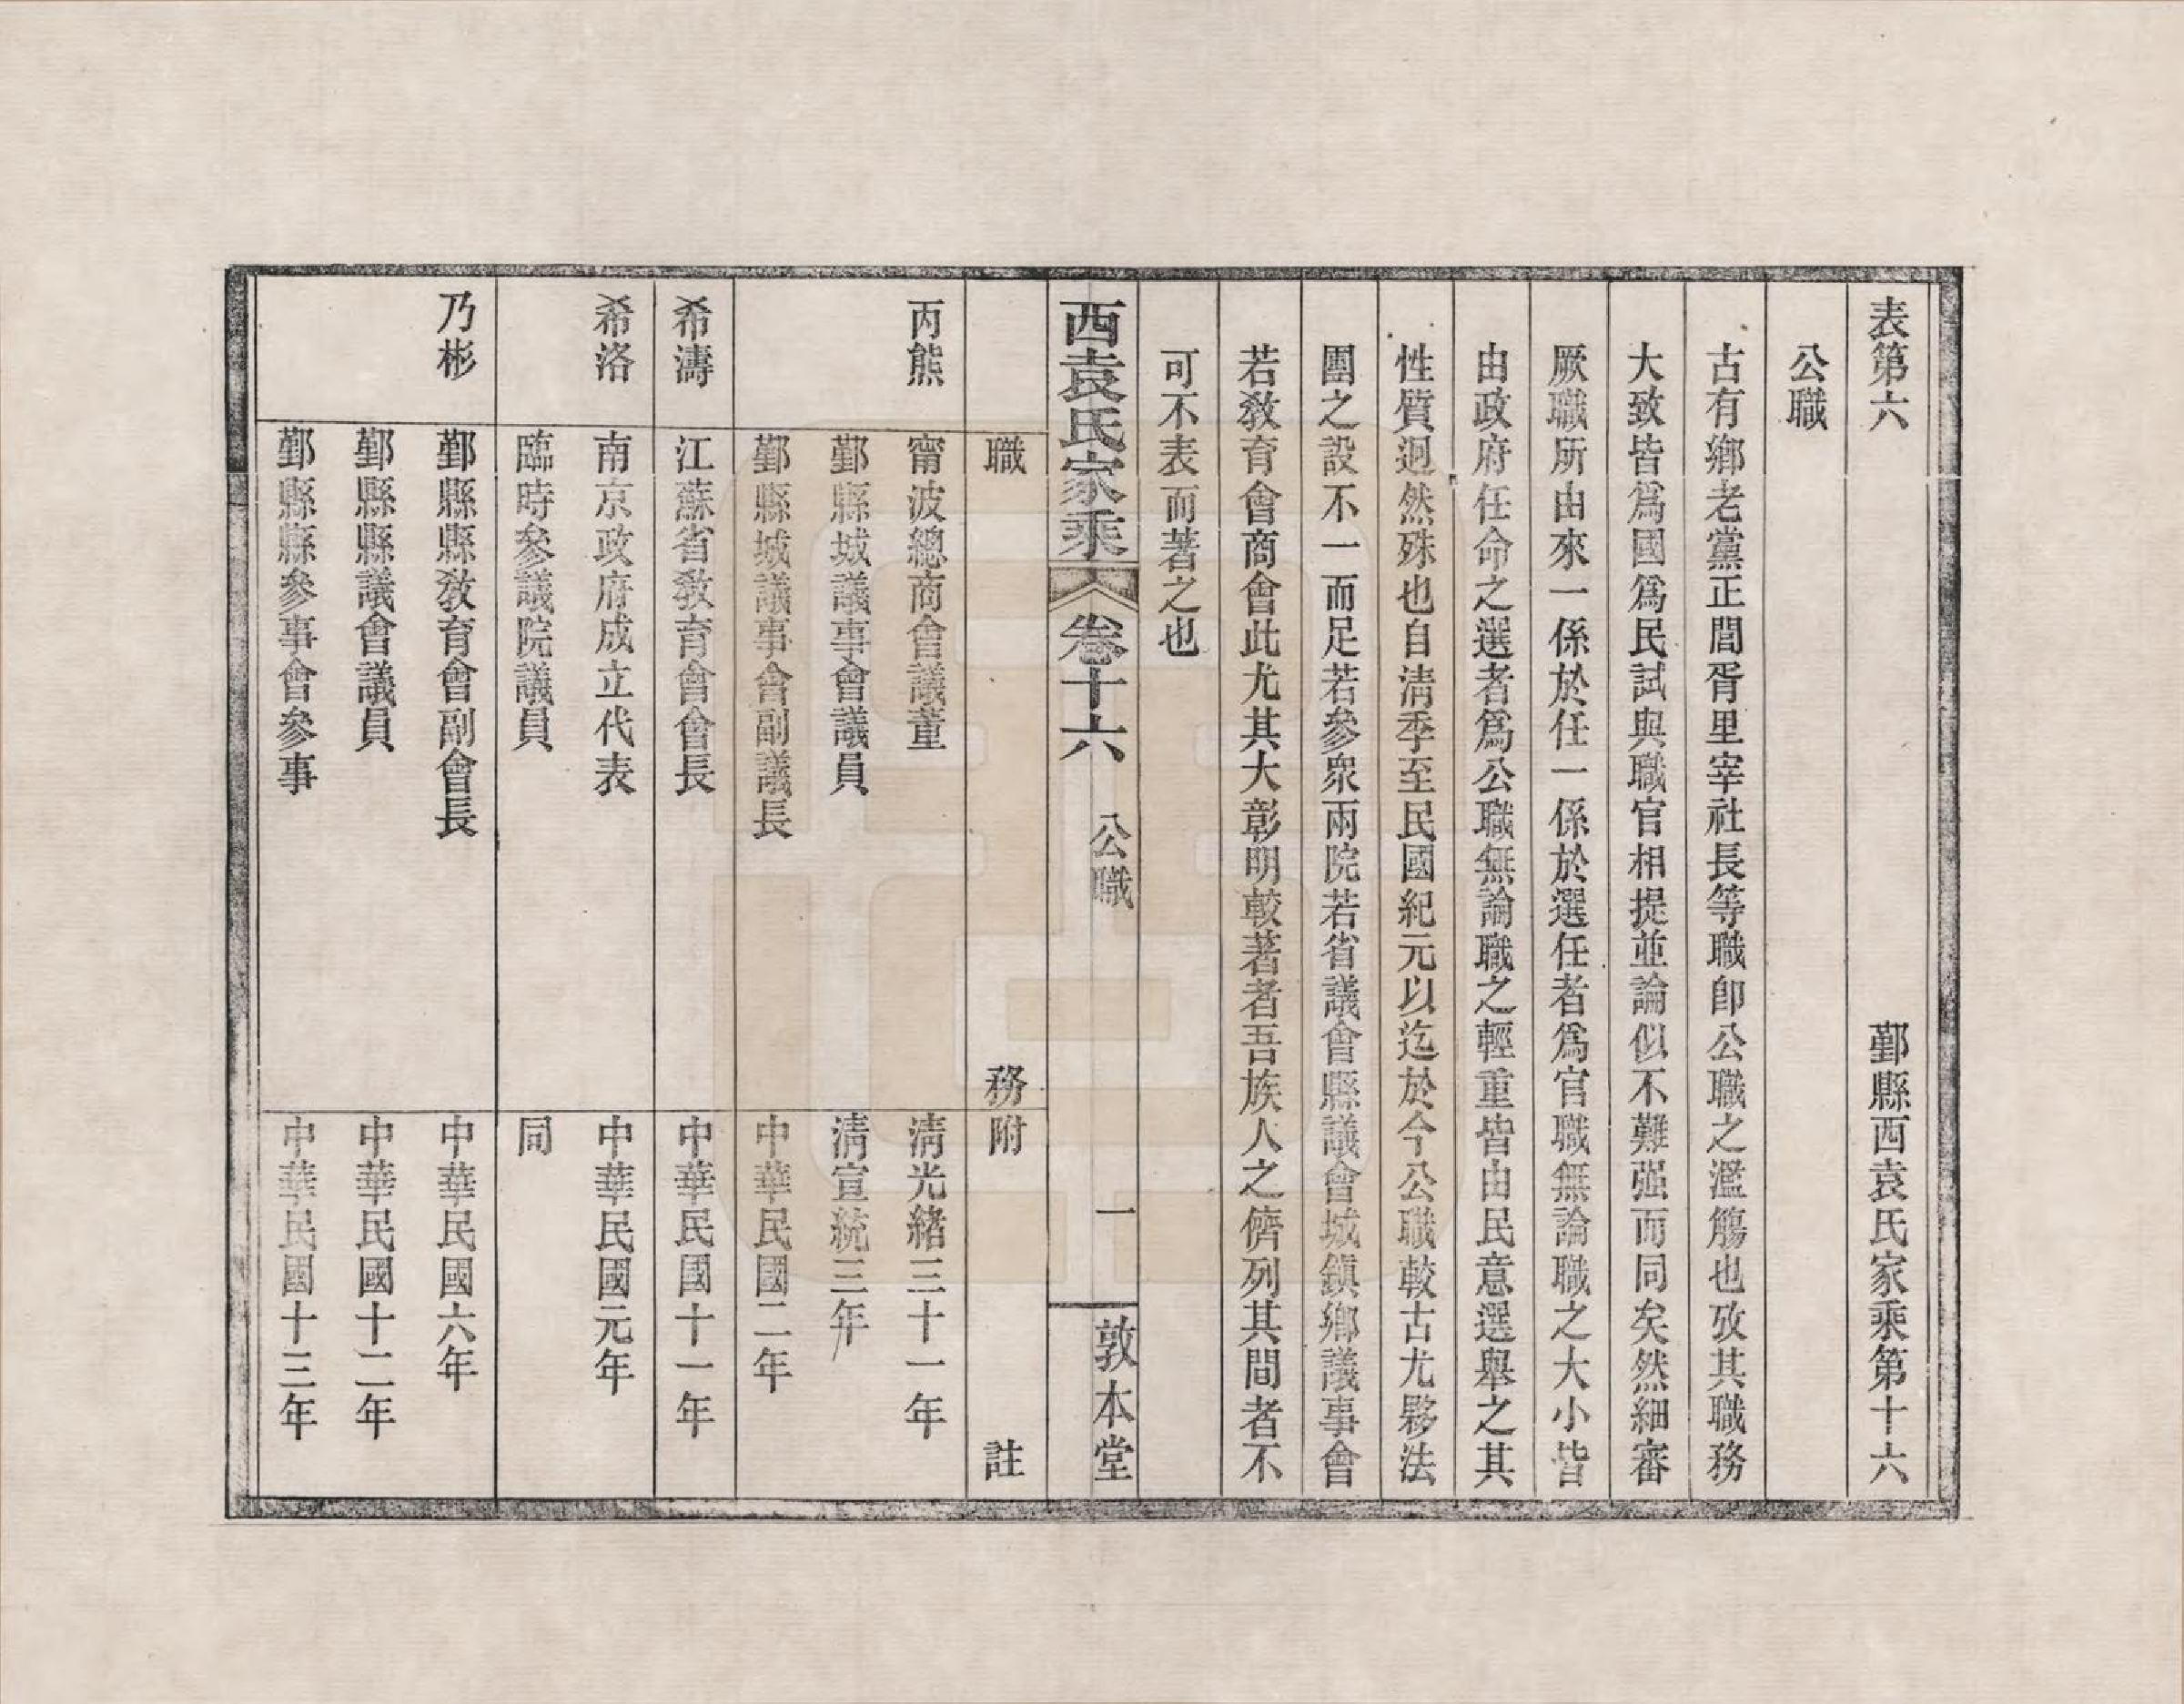 表第六　鄞縣西袁氏家乘第十六
公職
古有鄉老黨正閭胥里宰社長等職卽公職之濫觴也攷其職務
大致皆爲國爲民試與職官相提並論似不難强而同矣然細審
厥職所由來一係於任一係於選任者爲官職無論職之大小皆
由政府任命之選者爲公職無論職之輕重皆由民意選舉之其
性質迥然殊也自清季至民國紀元以迄於今公職較古尤夥法
團之設不一而足若參衆兩院若省議會縣議會城鎮鄉議事會
若敎育會商會此尤其大彰明較著者吾族人之儕列其間者不
可不表而著之也
西袁氏家乘　卷十六　公職　一　敦本堂
職務　附註
丙熊　甯波總商會議董　清光緒三十一年
鄞縣城議事會議員　清宣統三年
鄞縣城議事會副議長　中華民國二年
希濤　江蘇省敎育會會長　中華民國十一年
希洛　南京政府成立代表　中華民國元年
臨時參議院議員　同
乃彬　鄞縣縣敎育會副會長　中華民國六年
鄞縣縣議會議員　中華民國十二年
鄞縣縣參事會參事　中華民國十三年